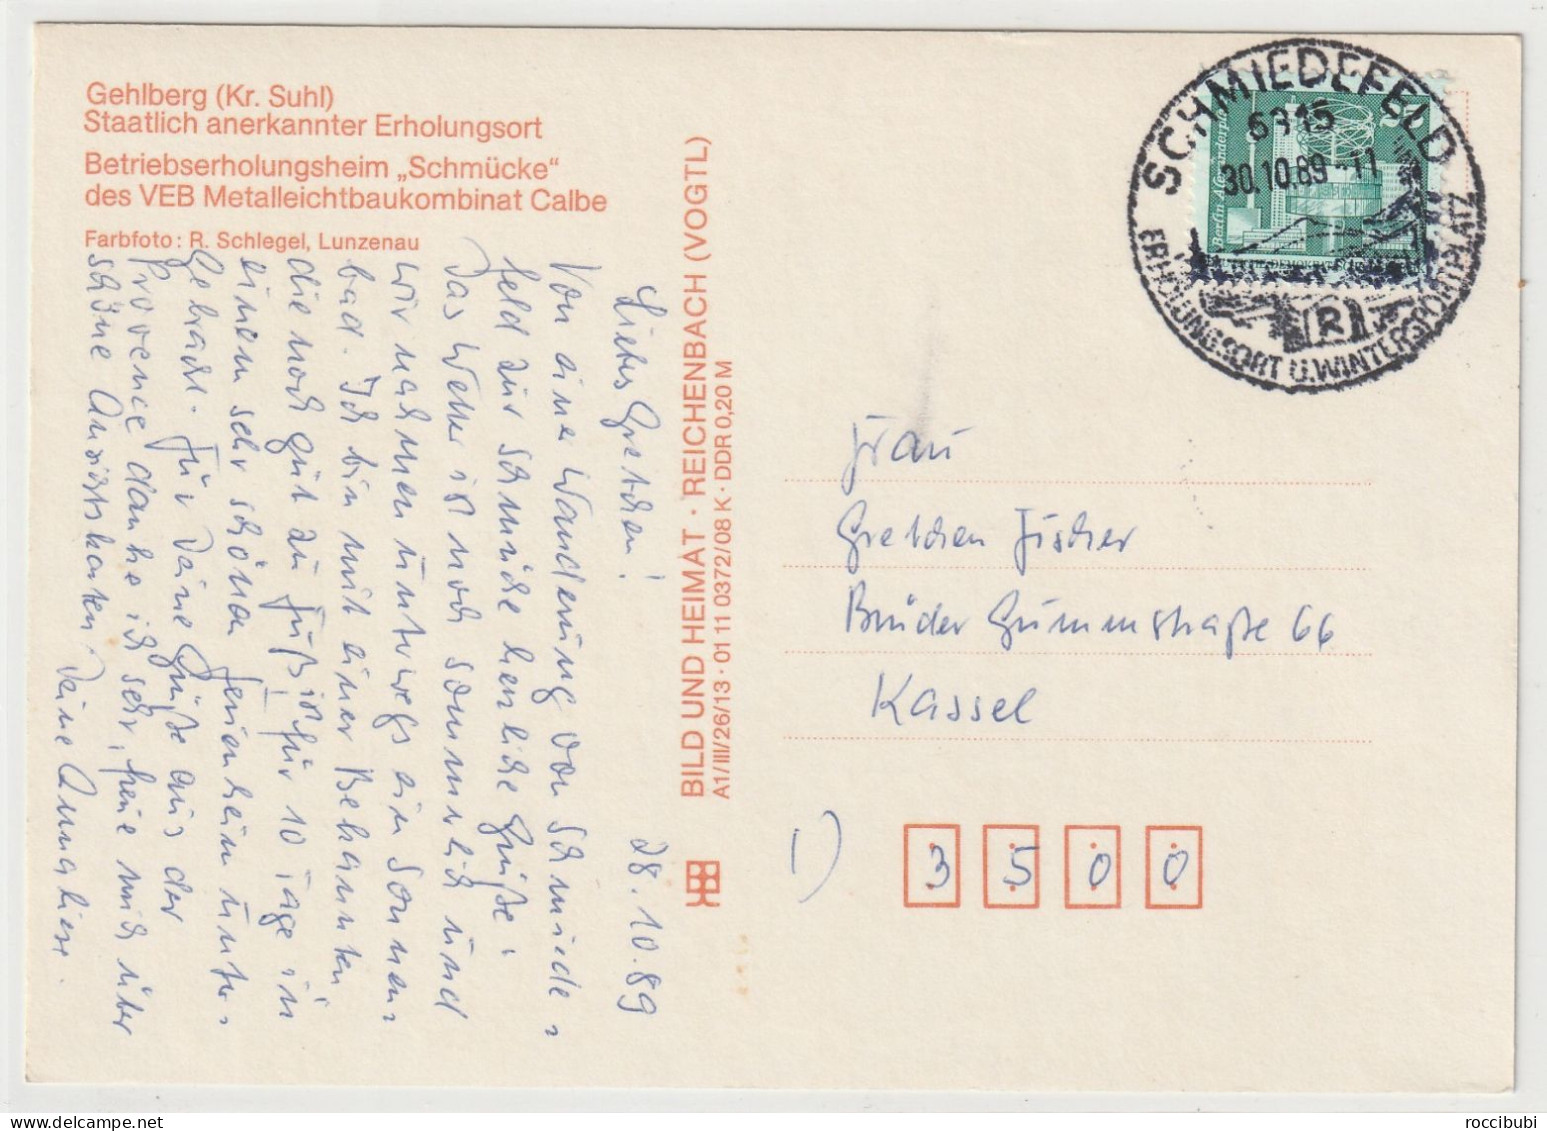 Gehlberg (Kr. Suhl)
Staatlich anerkannter Erholungsort
Betriebserholungsheim „Schmücke“
des VEB Metalleichtbaukombinat Calbe
Farbfoto: R. Schlegel, Lunzenau
28.10.89
Liebes Gretchen!
Von einer Wanderung von Schmiede=
feld zur Schmücke herzliche Grüße.
Das Wetter ist noch sommerlich und
wir nahmen unterwegs ein Sonnen=
bad. Ich bin mit einer Bekannten
die noch gut zu Fuß ist für 10 Tage in
einem sehr schönen Ferienheim unter=
gebracht. Für Deine Grüße aus der
Provence danke ich sehr, freue mich über
schöne Ansichtskarten. Deine Annaliese.
BILD UND HEIMAT · REICHENBACH (VOGTL)
A1/III/26/13 · 01 11 0372/08 K · DDR 0,20 M
SCHMIEDEFELD
6315
30.10.89-11
ERHOLUNGSORT U. WINTERSPORTPLATZ
R
Frau
Gretchen Fischer
Brüder Grimmstraße 66
Kassel
1)
3 5 0 0
roccibubi